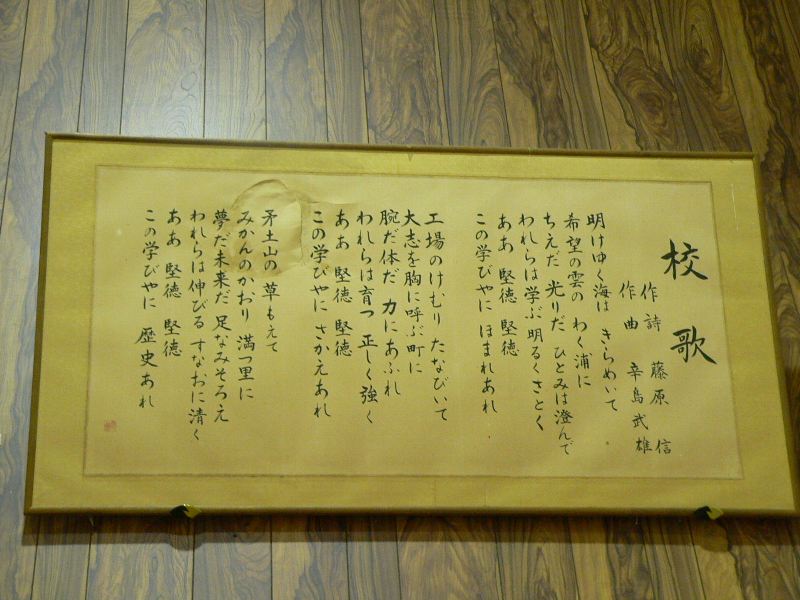 校歌
作詩 藤原 信
作曲 辛島武雄
明けゆく海は きらめいて
希望の雲の わく浦に
ちえだ 光りだ ひとみは澄んで
われらは学ぶ 明るくさとく
ああ 堅徳 堅徳
この学びやに ほまれあれ
工場のけむり たなびいて
大志を胸に 呼ぶ町に
腕だ体だ 力にあふれ
われらは育つ 正しく強く
ああ 堅徳 堅徳
この学びやに さかえあれ
矛土山の 草もえて
みかんのかおり 満つ里に
夢だ未来だ 足なみそろえ
われらは伸びる すなおに清く
ああ 堅徳 堅徳
この学びやに 歴史あれ